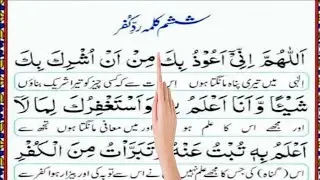 ششم کلمہ رد کفر
اَللّٰهُمَّ اِنِّیْۤ اَعُوْذُ بِكَ مِنْ اَنْ اُشْرِكَ بِكَ
الہٰی میں تیری پناہ مانگتا ہوں اس بات سے کہ کسی چیز کو تیرا شریک بناؤں
شَیْئًا وَّاَنَا اَعْلَمُ بِهٖ وَاَسْتَغْفِرُكَ لِمَا لَاۤ
اور مجھے اس کا علم ہو اور میں معافی مانگتا ہوں تجھ سے
اَعْلَمُ بِهٖ تُبْتُ عَنْهُ وَتَبَرَّاْتُ مِنَ الْكُفْرِ
اس (گناہ) کی جس کا مجھے علم نہیں میں نے اس سے توبہ کی اور بیزار ہوا کفر سے